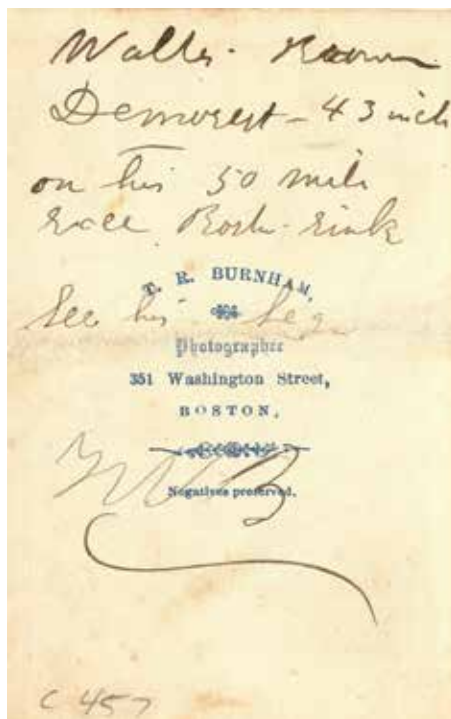 Walter Brown
Demorest - 43 inch
on his 50 mile
race Bosto. rink
T. R. BURNHAM,
See his legs
Photographer
351 Washington Street,
BOSTON.
Negatives preserved.
C 457